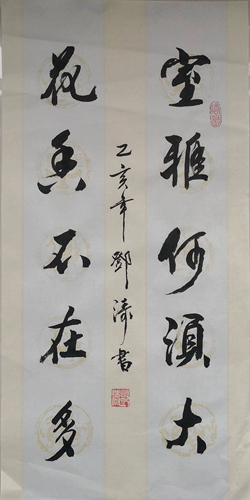 室雅何須大
花香不在多
乙亥年鄧濤書